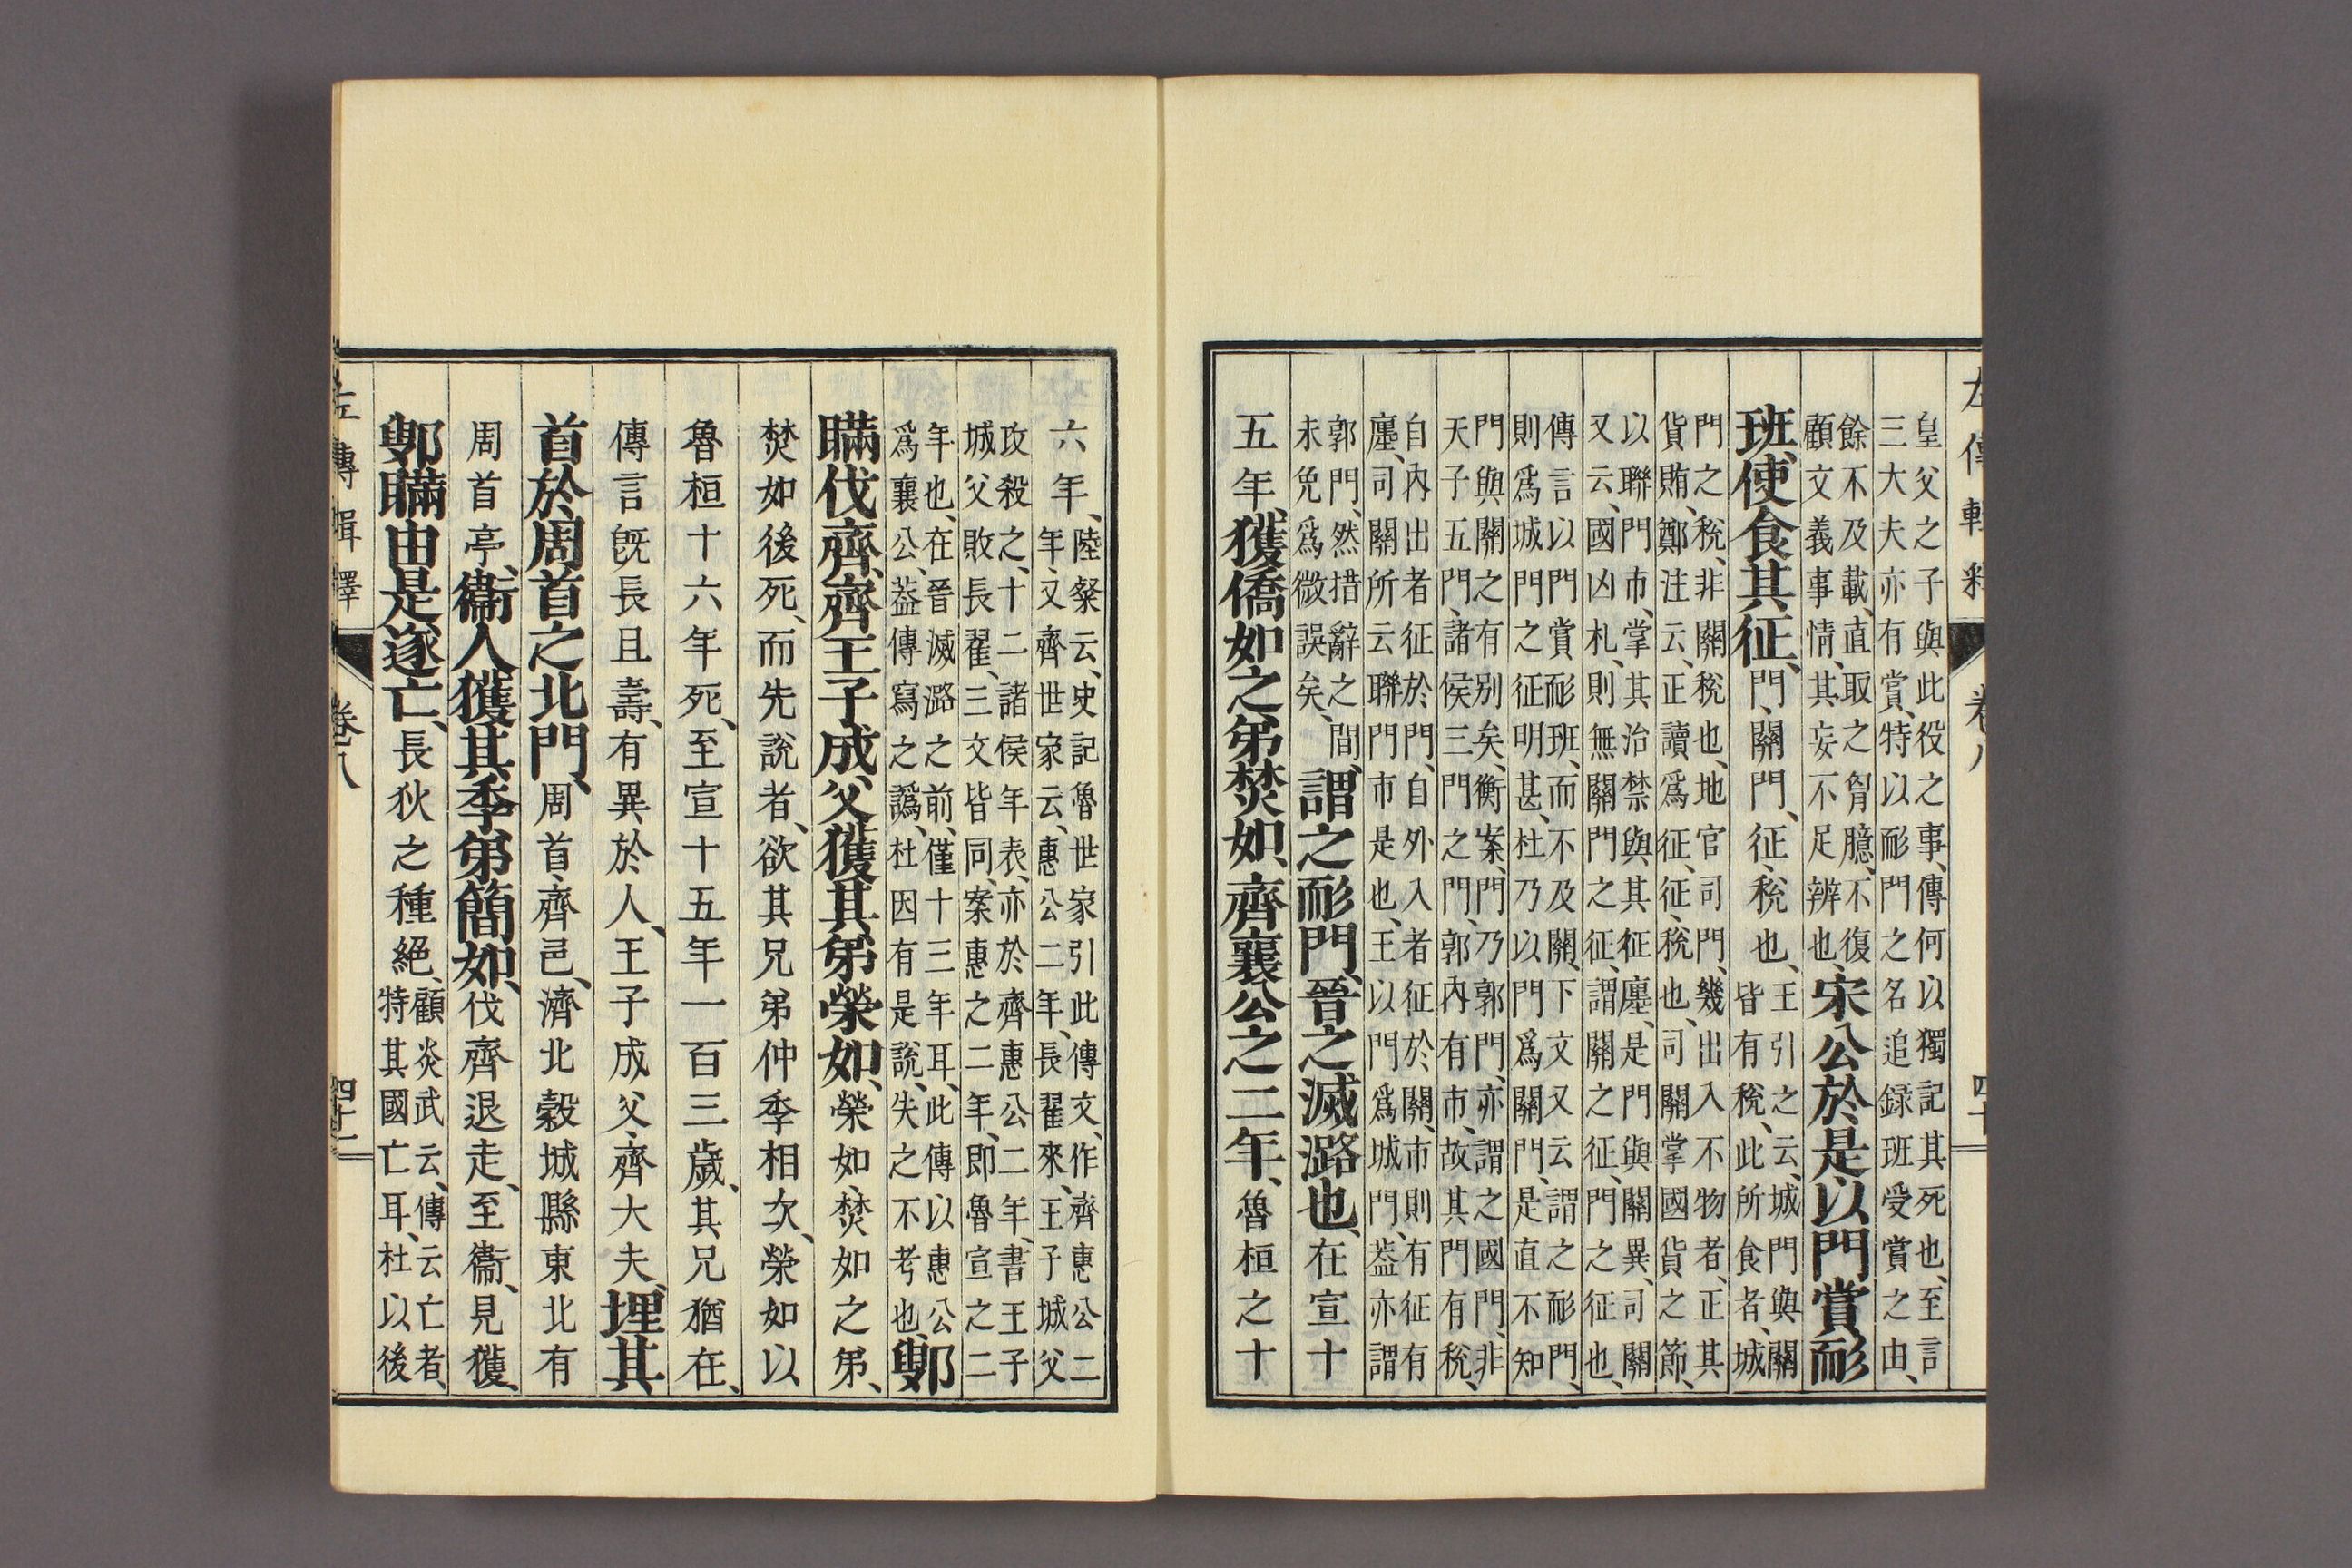 左傳輯釋 卷八
皇父之子與此役之事、傳何以獨記其死也、至言
三大夫亦有賞、特以耏門之名追録班受賞之由、
餘不及載、直取之胷臆、不復
顧文義事情、其妄不足辨也、宋公於是以門賞耏
班、使食其征、門、關門、征、稅也、王引之云、城門與關
皆有稅、此所食者、城
門之稅、非關稅也、地官司門、幾出入不物者、正其
貨賄、鄭注云、正讀爲征、征、稅也、司關掌國貨之節、
以聯門市、掌其治禁與其征廛、是門與關異、司關
又云、國凶札、則無關門之征、謂關之征、門之征也、
傳言以門賞耏班、而不及關、下文又云謂之耏門、
則爲城門之征明甚、杜乃以門爲關門、是直不知
門與關之有別矣、衡案、門乃郭門、亦謂之國門、非
天子五門、諸侯三門之門、郭內有市、故其門有稅、
自內出者征於門、自外入者征於關、市則有征有
廛、司關所云聯門市是也、王以門爲城門、葢亦謂
郭門、然措辭之間、
未免爲微誤矣、謂之耏門、晉之滅潞也、在宣十
五年、獲僑如之弟焚如、齊襄公之二年、魯桓之十
六年、陸粲云、史記魯世家引此傳文、作齊惠公二
年、又齊世家云、惠公二年、長翟來、王子城父
攻殺之、十二諸侯年表、亦於齊惠公二年、書王子
城父敗長翟、三文皆同、案惠之二年、即魯宣之二
年也、在晉滅潞之前、僅十三年耳、此傳以惠公
爲襄公、葢傳寫之譌、杜因有是說、失之不考也、鄋
瞞伐齊、齊王子成父獲其弟榮如、榮如、焚如之弟、
焚如後死、而先說者、欲其兄弟仲季相次、榮如以
魯桓十六年死、至宣十五年一百三歲、其兄猶在、
傳言旣長且壽、有異於人、王子成父、齊大夫、埋其
首於周首之北門、周首、齊邑、濟北穀城縣東北有
周首亭、衞人獲其季弟簡如、伐齊退走、至衞、見獲、
鄋瞞由是遂亡、長狄之種絕、顧炎武云、傳云亡者、
特其國亡耳、杜以後
左傳輯釋 卷八 四十二